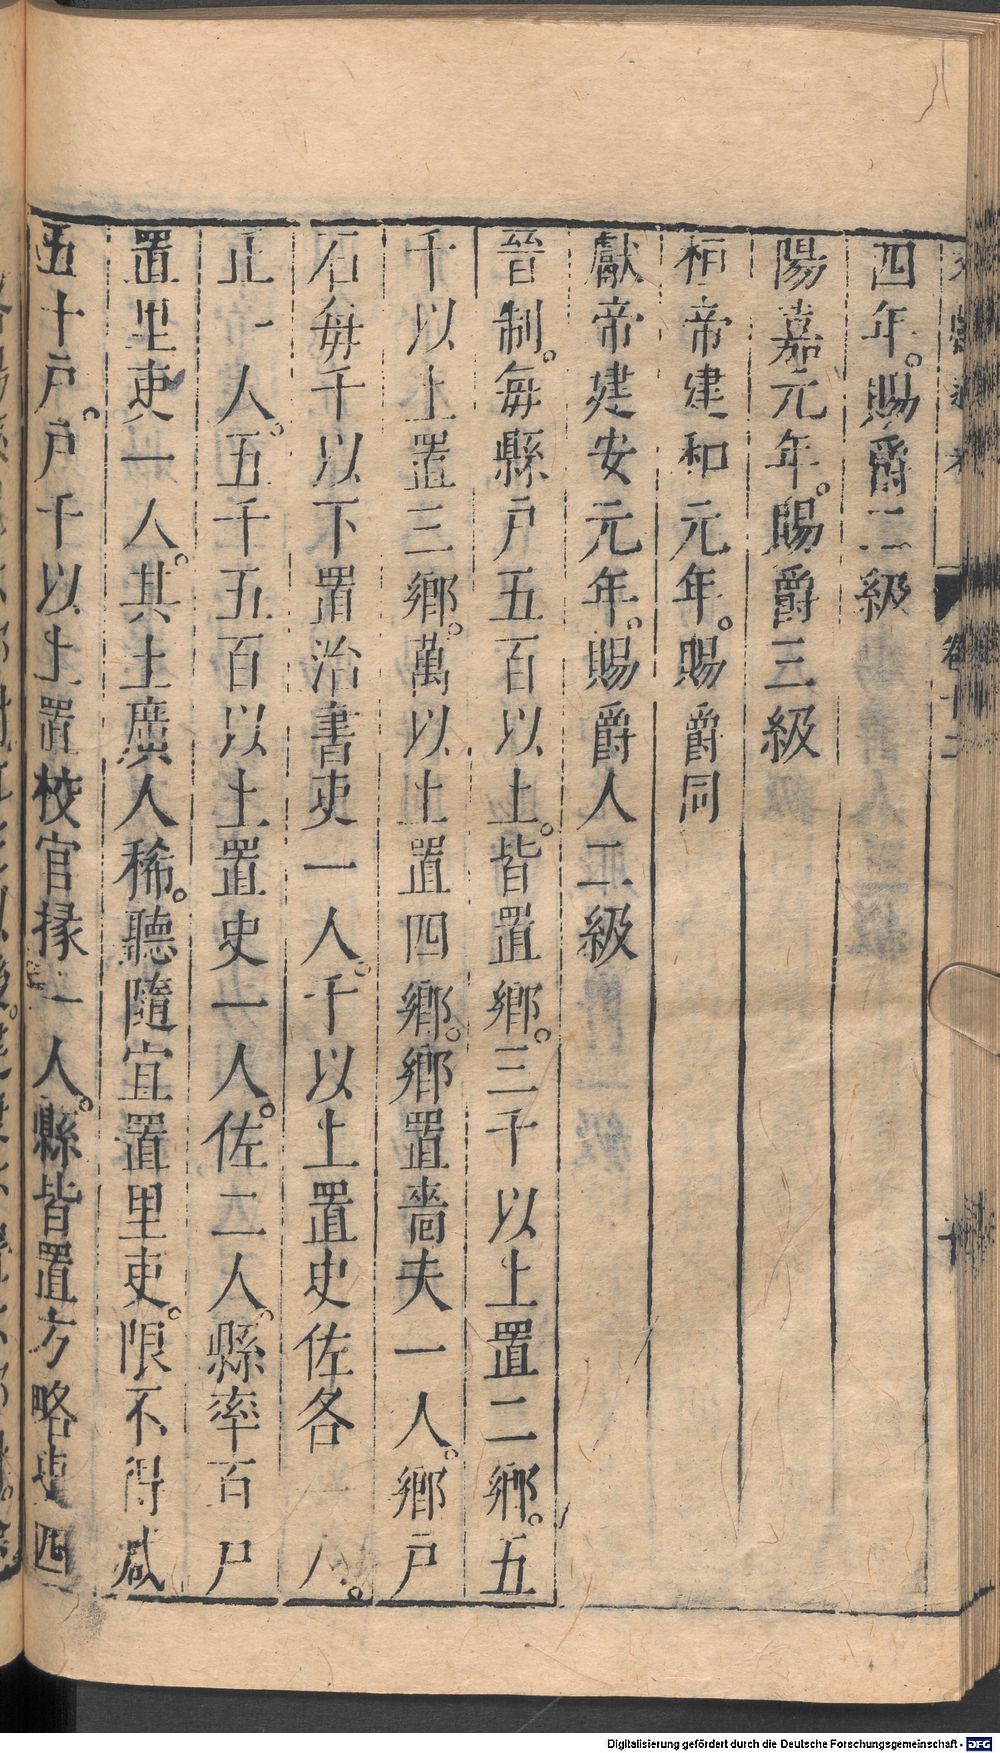 四年。賜爵二級
陽嘉元年。賜爵三級
桓帝建和元年。賜爵同
獻帝建安元年。賜爵人二級
晉制。每縣戶五百以上。皆置鄉。三千以上置二鄉。五
千以上置三鄉。萬以上置四鄉。鄉置嗇夫一人。鄉戶
不每千以下置治書吏一人。千以上置史佐各一人。
正一人。五千五百以上置史一人。佐二人。縣率百戶
置里吏一人。其土廣人稀。聽隨宜置里吏。限不得減
五十戶。戶千以上置校官掾一人。縣皆置方略吏四
卷十二
十
Digitalisierung gefördert durch die Deutsche Forschungsgemeinschaft - DFG